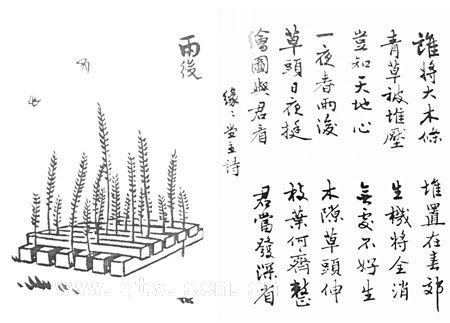 雨後
誰將大木條 堆置在春郊
青草被堆壓 生機將全消
豈知天地心 無處不好生
一夜春雨後 木隙草頭伸
草頭日夜挺 枝葉何齊整
繪圖與君看 君當發深省
緣〻堂主詩